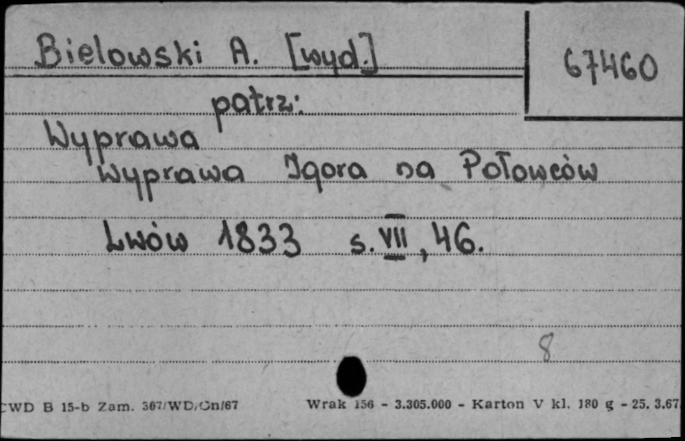 Bielowski A. [wyd.]
67460
patrz:
Wyprawa
Wyprawa Igora na Połowców
Lwów 1833 s. VII, 46.
8
CWD B 15-b Zam. 367/WD/Gn/67 Wrak 156 - 3.305.000 - Karton V kl. 180 g - 25. 3.67